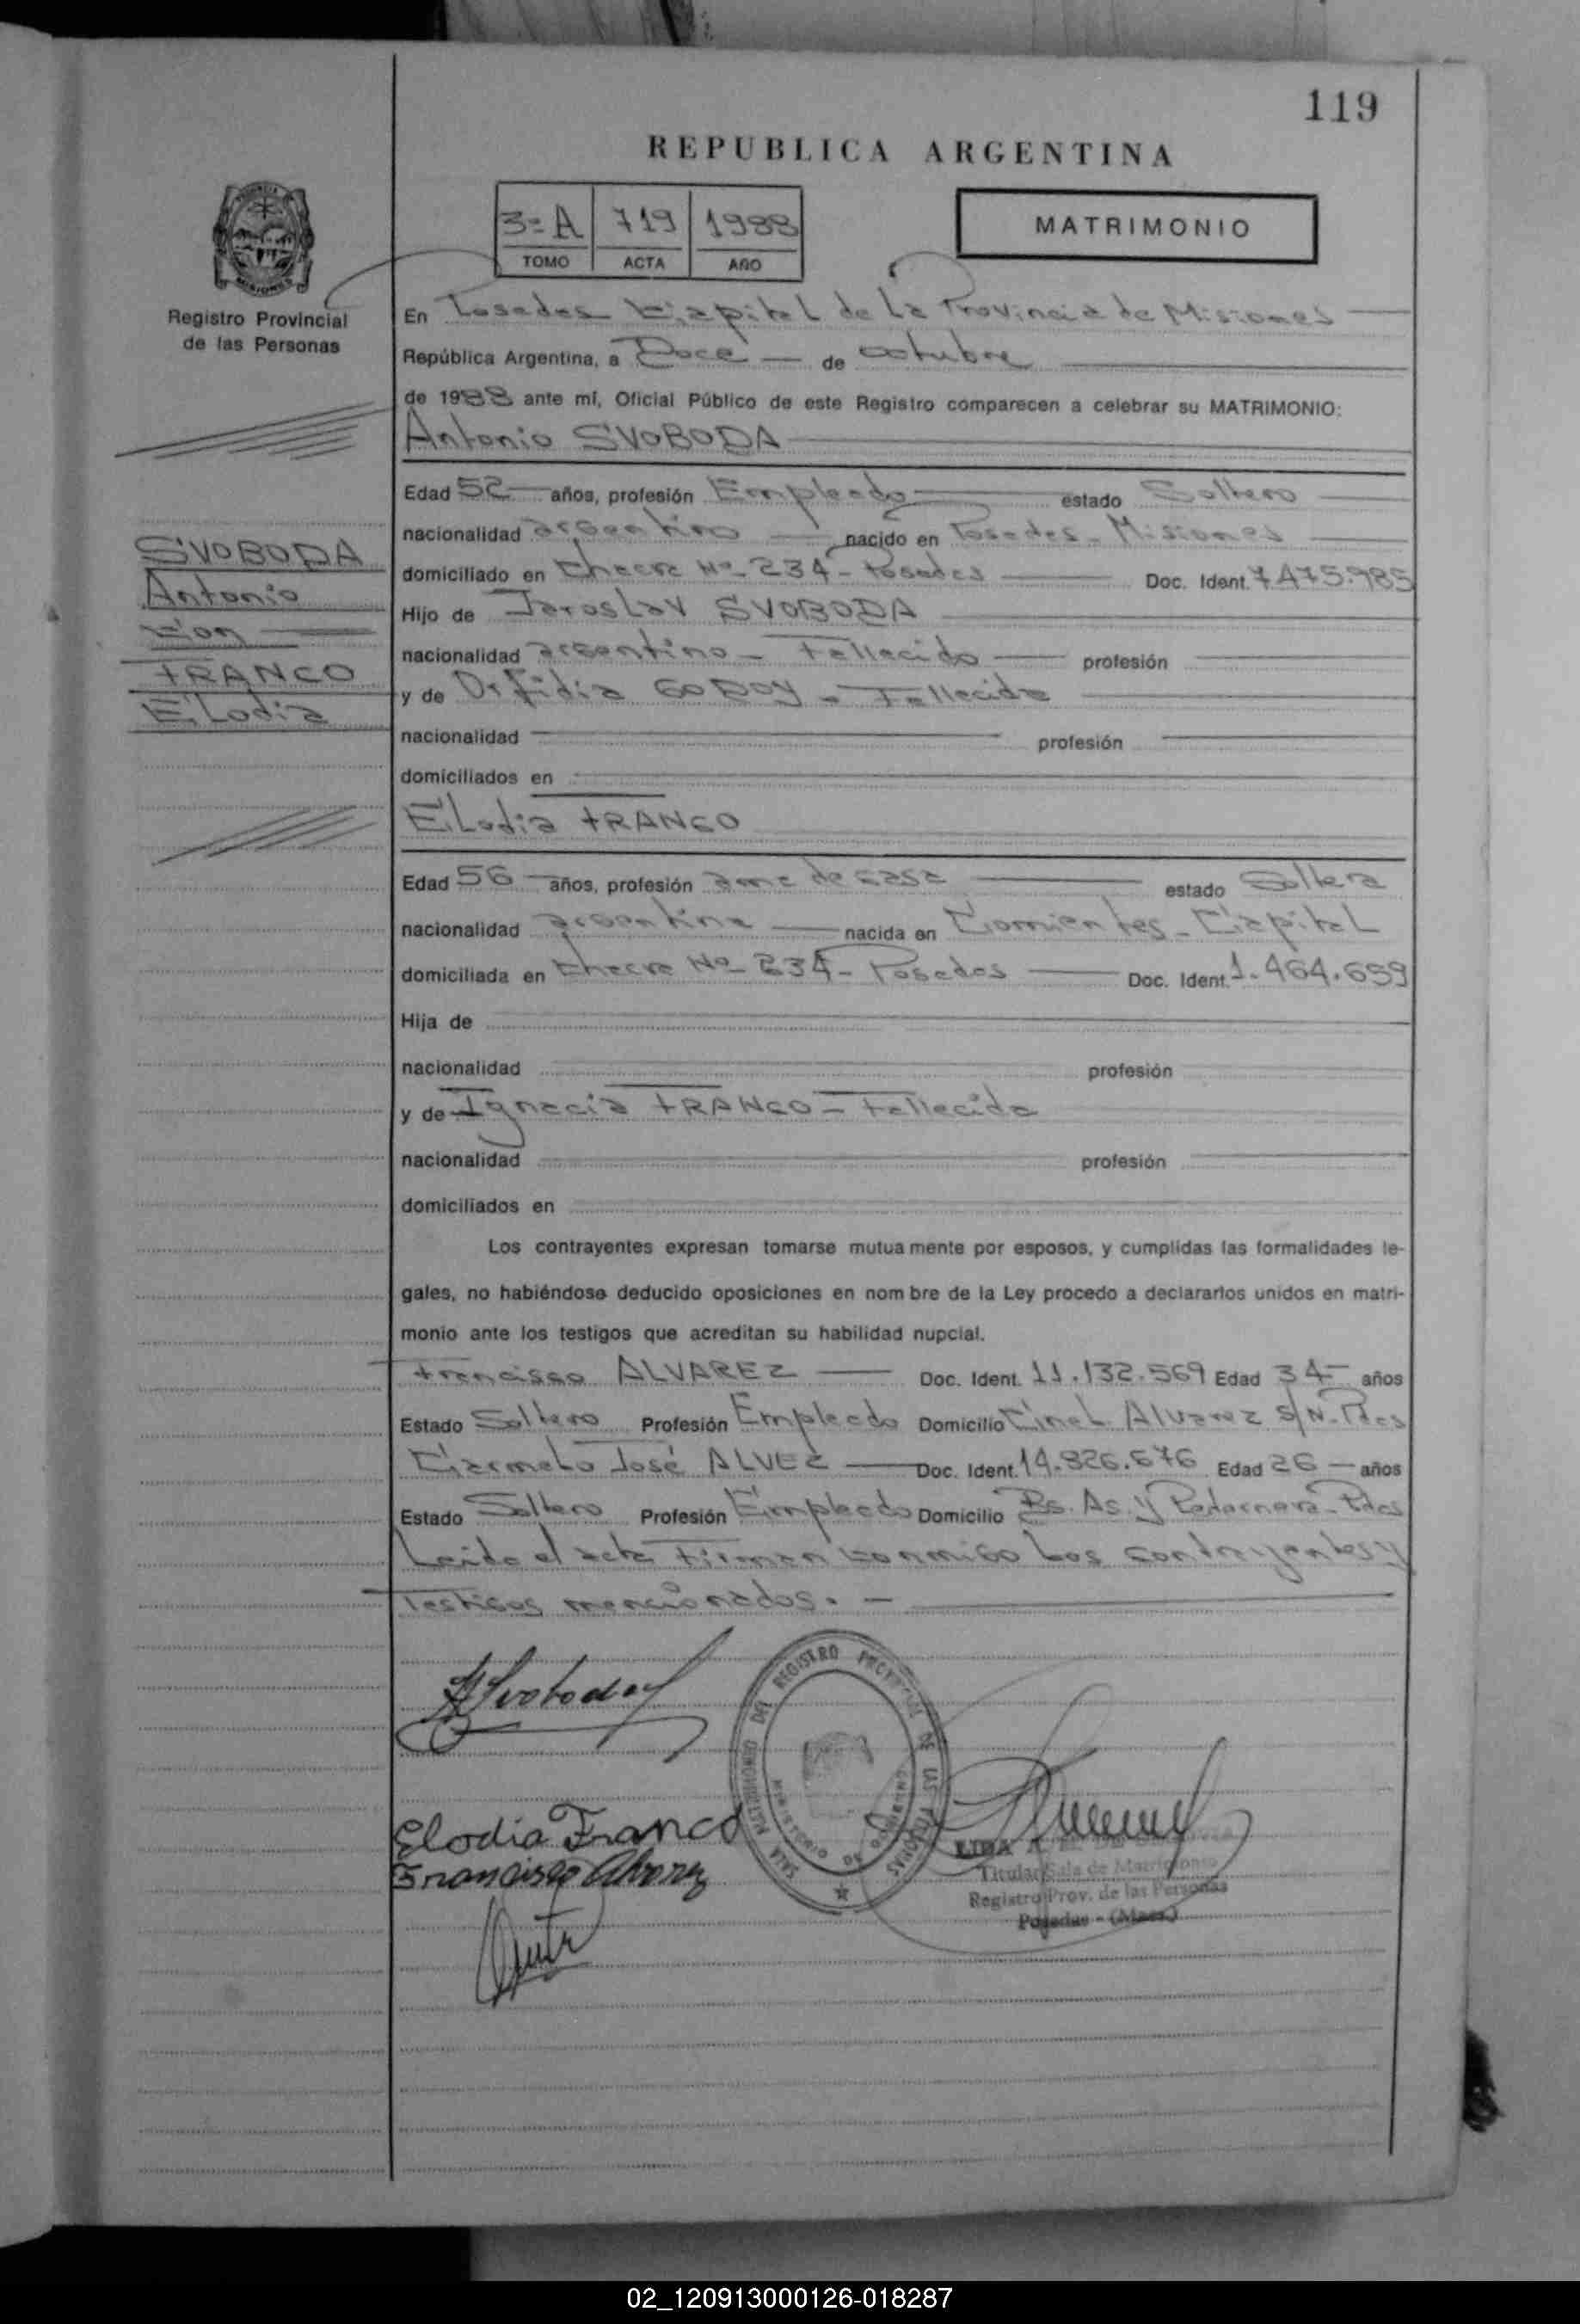 119
REPUBLICA ARGENTINA
3=A 719 1988
TOMO ACTA AÑO
MATRIMONIO
Registro Provincial
de las Personas
En Posadas Capital de la Provincia de Misiones
República Argentina, a Doce de octubre
de 1988 ante mí, Oficial Público de este Registro comparecen a celebrar su MATRIMONIO:
Antonio SVOBODA
Edad 52 años, profesión Empleado estado Soltero
nacionalidad argentino nacido en Posadas - Misiones
domiciliado en Chacra Nº 234 - Posadas Doc. Ident. 7.475.985
Hijo de Jaroslav SVOBODA
nacionalidad argentino - Fallecido profesión
y de Orfidia GODOY - Fallecida
nacionalidad profesión
domiciliados en
SVOBODA
Antonio
Con
FRANCO
Elodia
Elodia FRANCO
Edad 56 años, profesión ama de casa estado Soltera
nacionalidad argentina nacida en Corrientes - Capital
domiciliada en Chacra Nº 234 - Posadas Doc. Ident. 1.464.659
Hija de
nacionalidad profesión
y de Ignacia FRANCO - Fallecida
nacionalidad profesión
domiciliados en
Los contrayentes expresan tomarse mutuamente por esposos, y cumplidas las formalidades le-
gales, no habiéndose deducido oposiciones en nombre de la Ley procedo a declararlos unidos en matri-
monio ante los testigos que acreditan su habilidad nupcial.
Francisco ALVAREZ Doc. Ident. 11.132.569 Edad 34 años
Estado Soltero Profesión Empleado Domicilio Cnel. Alvarez S/N. Pdas
Carmelo José ALVEZ Doc. Ident. 14.926.676 Edad 26 años
Estado Soltero Profesión Empleado Domicilio Bs. As. y Pedernera - Pdas
Leída el acta Firman conmigo los contrayentes y
Testigos mencionados. -
A Svoboda
Elodia Franco
Francisco Alvarez
SALA MATRIMONIO DEL REGISTRO PROVINCIAL DE LAS PERSONAS
LIDA
Titular Sala de Matrimonio
Registro Prov. de las Personas
Posadas - (Mnes.)
02_120913000126-018287